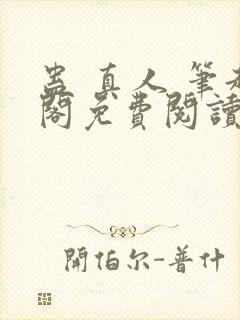 蛊真人 筆趣
閣免費閱讀
開伯尔-普什